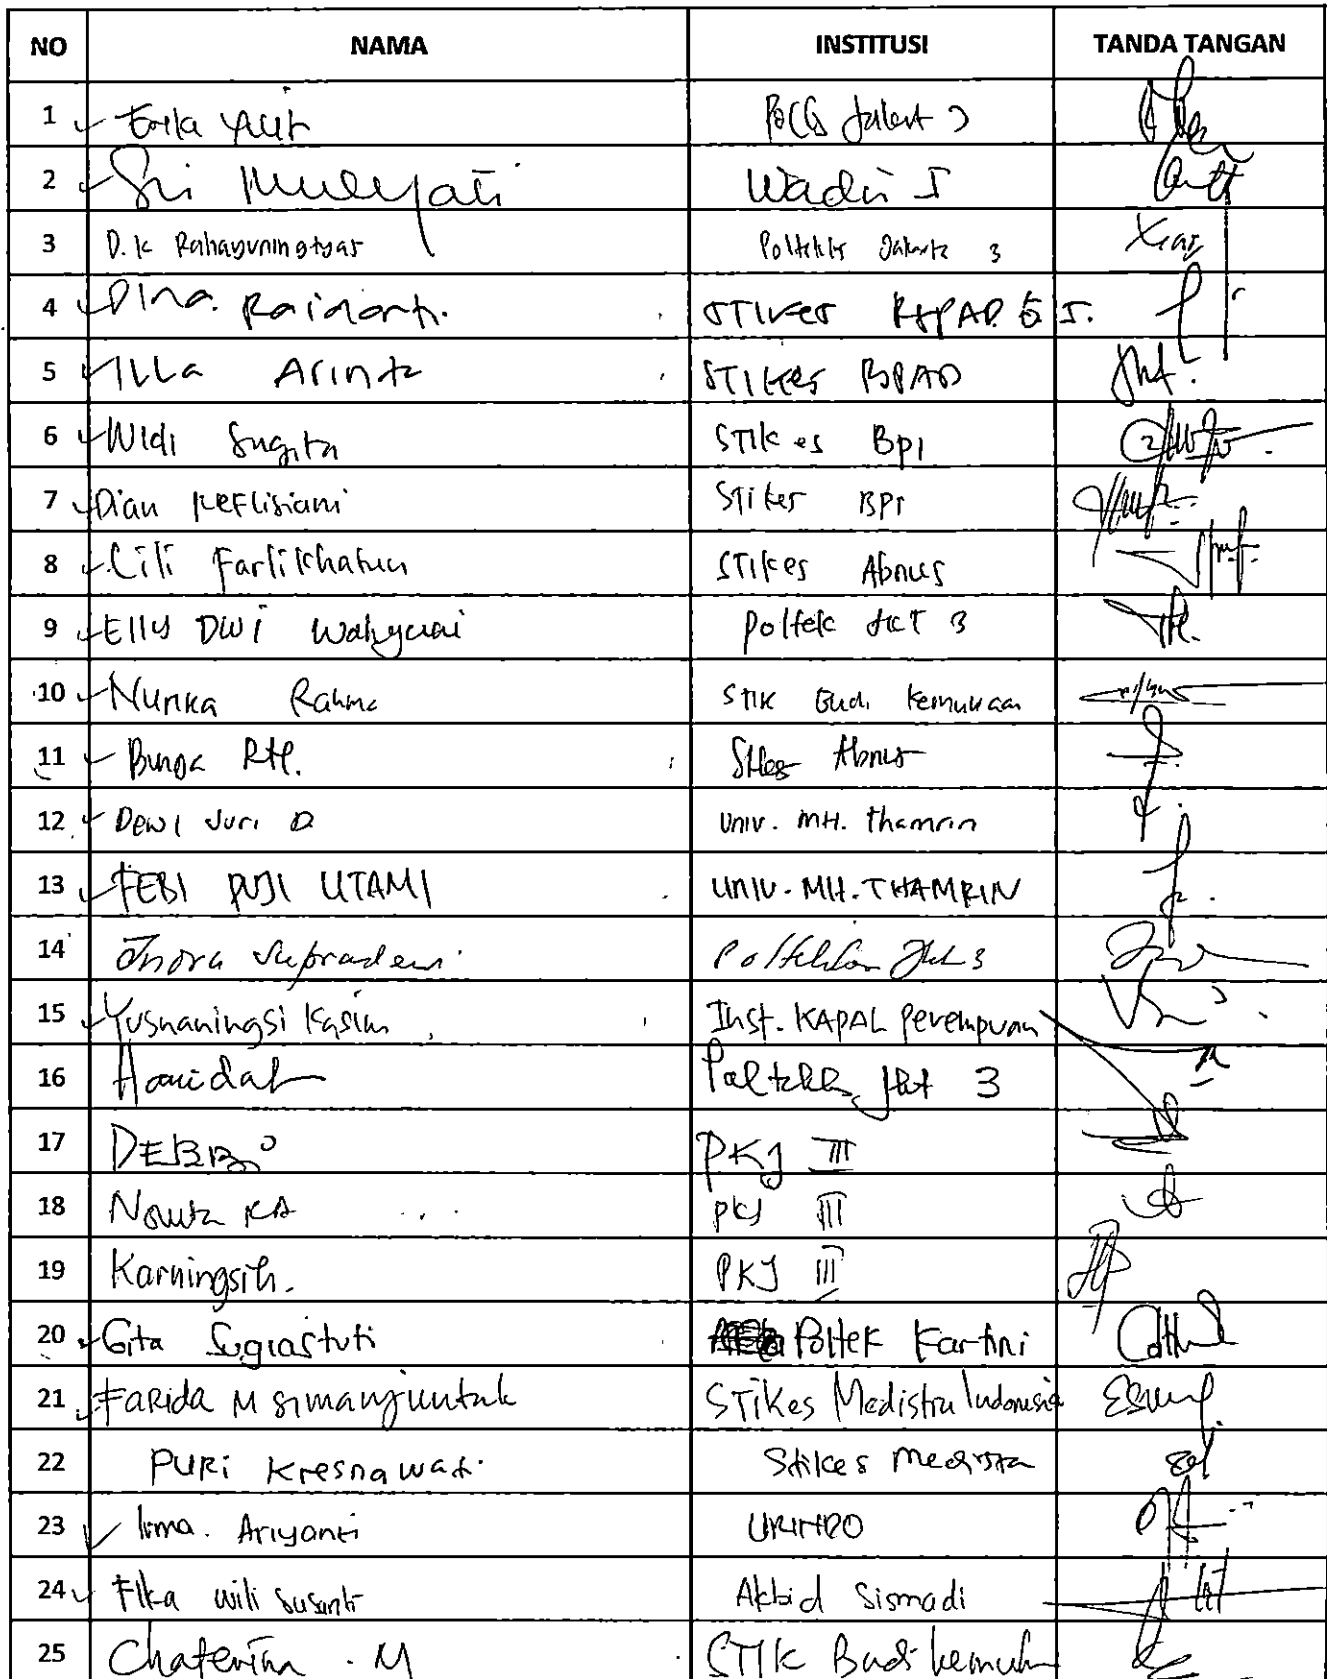 NO NAMA INSTITUSI TANDA TANGAN
1 Erika Yulit
2 Sri Mulyati Wadir I
3 D.K Rahayuningtyas Poltekkes Jakarta 3
4 Dina. Raidanti. STIKes RSPAD G S.
5 Illa Arinta STIKes RSPAD
6 Widi Sugita STIKes BPI
7 Dian Reflisiani Stikes BPI
8 Lili Farlikhatun STIKes Abnus
9 Elly Dwi Wahyuni Poltek JKT 3
10 Nunka Rahma STIK Budi Kemuliaan
11 Bunga RTL. Stikes Abnus
12 Dewi Suri D Univ. MH. Thamrin
13 FEBI PUJI UTAMI UNIV. MH. THAMRIN
14 Poltekkes Jkt 3
15 Yusnaningsi Kasim Inst. KAPAL Perempuan
16 Hamidah Poltekkes Jkt 3
17 DEBBI PKJ III
18 Novita KA PKJ III
19 Karningsih. PKJ III
20 Gita Sugiastuti Poltek Kartini
21 Farida M Simanjuntak STIKes Medistra Indonesia
22 PURI Kresnawati Stikes Medistra
23 Irma. Ariyanti URINDO
24 Elka Wili Susanti Akbid Sismadi
25 Chaterina . M STIK Budi kemuli